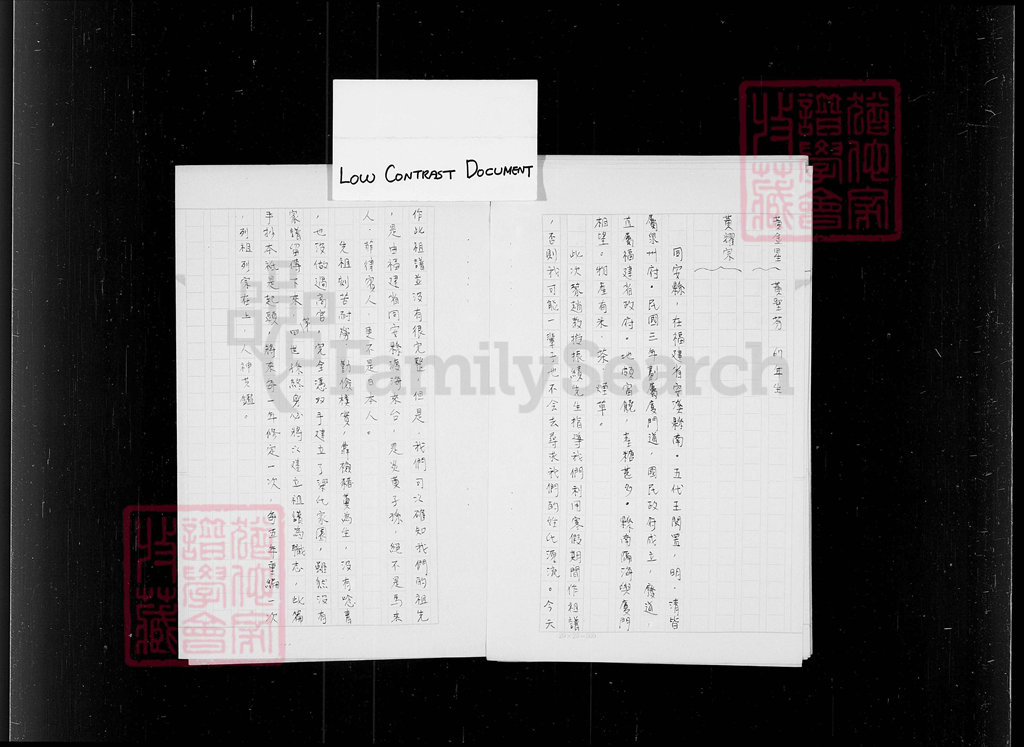 LOW CONTRAST DOCUMENT
黃金星 黃聖芳 67年生
黃耀宗
同安縣,在福建省安溪縣南。五代王閩置,明、清皆
屬泉州府。民國三年劃屬廈門道,國民政府成立,廢道,
直屬福建省政府。地頗富饒,產糖甚多。縣南濱海與廈門
相望。物產有米、茶、煙草。
此次蔡趙教授振績先生指導我們利用寒假期間作祖譜
,否則我可能一輩子也不會去尋求我們的姓氏源流。今天
作此祖譜並沒有很完整,但是,我們可以確知我們的祖先
,是由福建省同安縣渡海來台,是炎黃子孫,絕不是馬來
人、菲律賓人,更不是日本人。
先祖刻苦耐勞,勤儉樸實,靠種植為生,沒有唸書
,也沒做過高官,完全憑双手建立了家園,雖然沒有
家譜留傳下來,第四世孫將以建立祖譜為職志,此篇
手抄本祇是起頭,將來每一年修定一次,每五年重編一次
,列祖列宗在上,人神共鑑。
FamilySearch
20×25=500